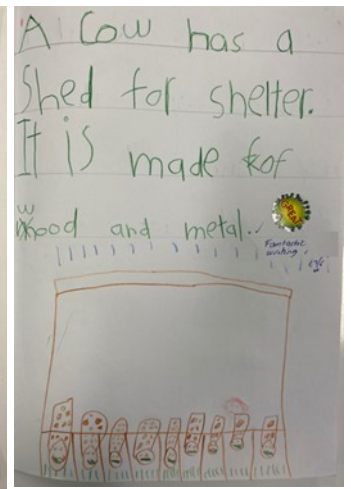 A Cow has a
Shed for shelter.
It is made of
wood and metal.
GREAT
Fantastic
writing.